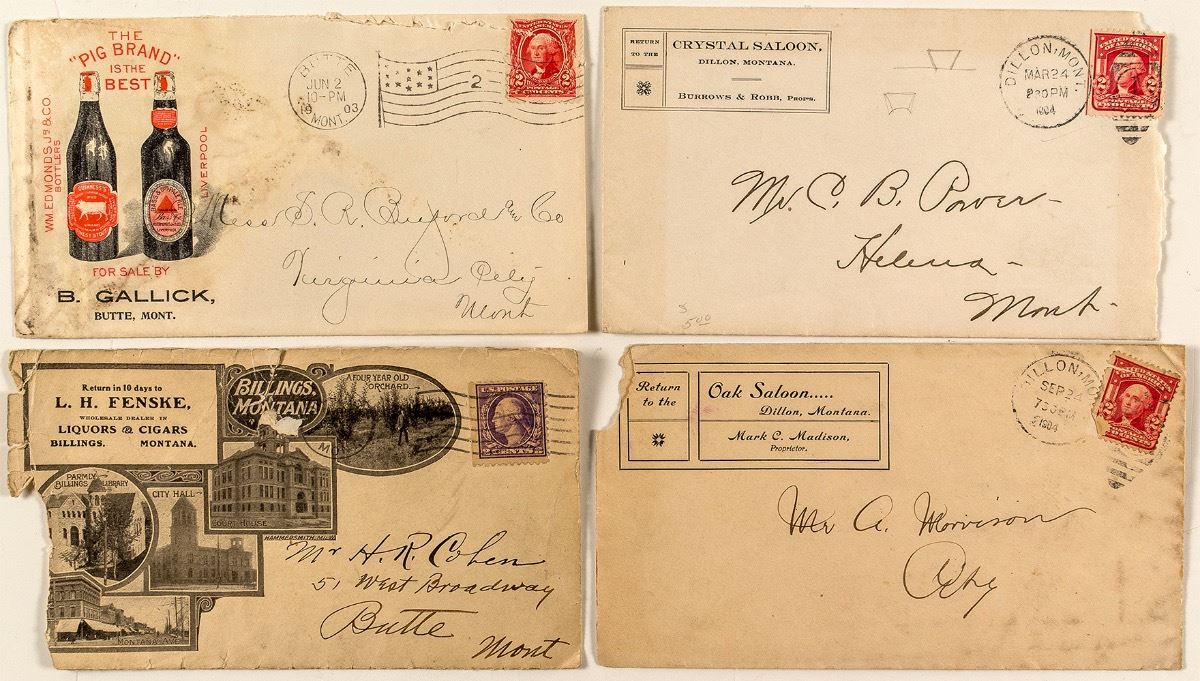 THE
"PIG BRAND"
IS THE
BEST
WM. EDMONDS JR & CO.
BOTTLERS
LIVERPOOL
GUINNESS'S
FOR SALE BY
B. GALLICK,
BUTTE, MONT.
BUTTE
JUN 2
10-PM
19 03
MONT.
2
UNITED STATES
2 2
POSTAGE
TWO CENTS
Mess S. R. Buford an Co
Virginia City
Mont
RETURN
TO THE
CRYSTAL SALOON,
DILLON, MONTANA.
BURROWS & ROBB, PROPS.
DILLON, MONT.
MAR 24
1904
2 2
Mr. C. B. Power
Helena
Mont.
5.00
Return in 10 days to
L. H. FENSKE,
WHOLESALE DEALER IN
LIQUORS & CIGARS
BILLINGS. MONTANA.
BILLINGS,
MONTANA
A FOUR YEAR OLD
ORCHARD
U.S. POSTAGE
CENTS
PARMLY
BILLINGS LIBRARY
CITY HALL
COURT HOUSE
HAMMERSMITH. MILW.
MONTANA AVE
Mr H. R. Cohen
51 West Broadway
Butte
Mont
Return
to the
Oak Saloon.....
Dillon, Montana.
Mark C. Madison,
Proprietor.
DILLON, MO
SEP 24
1904
2 2
Mr A. Morrison
City